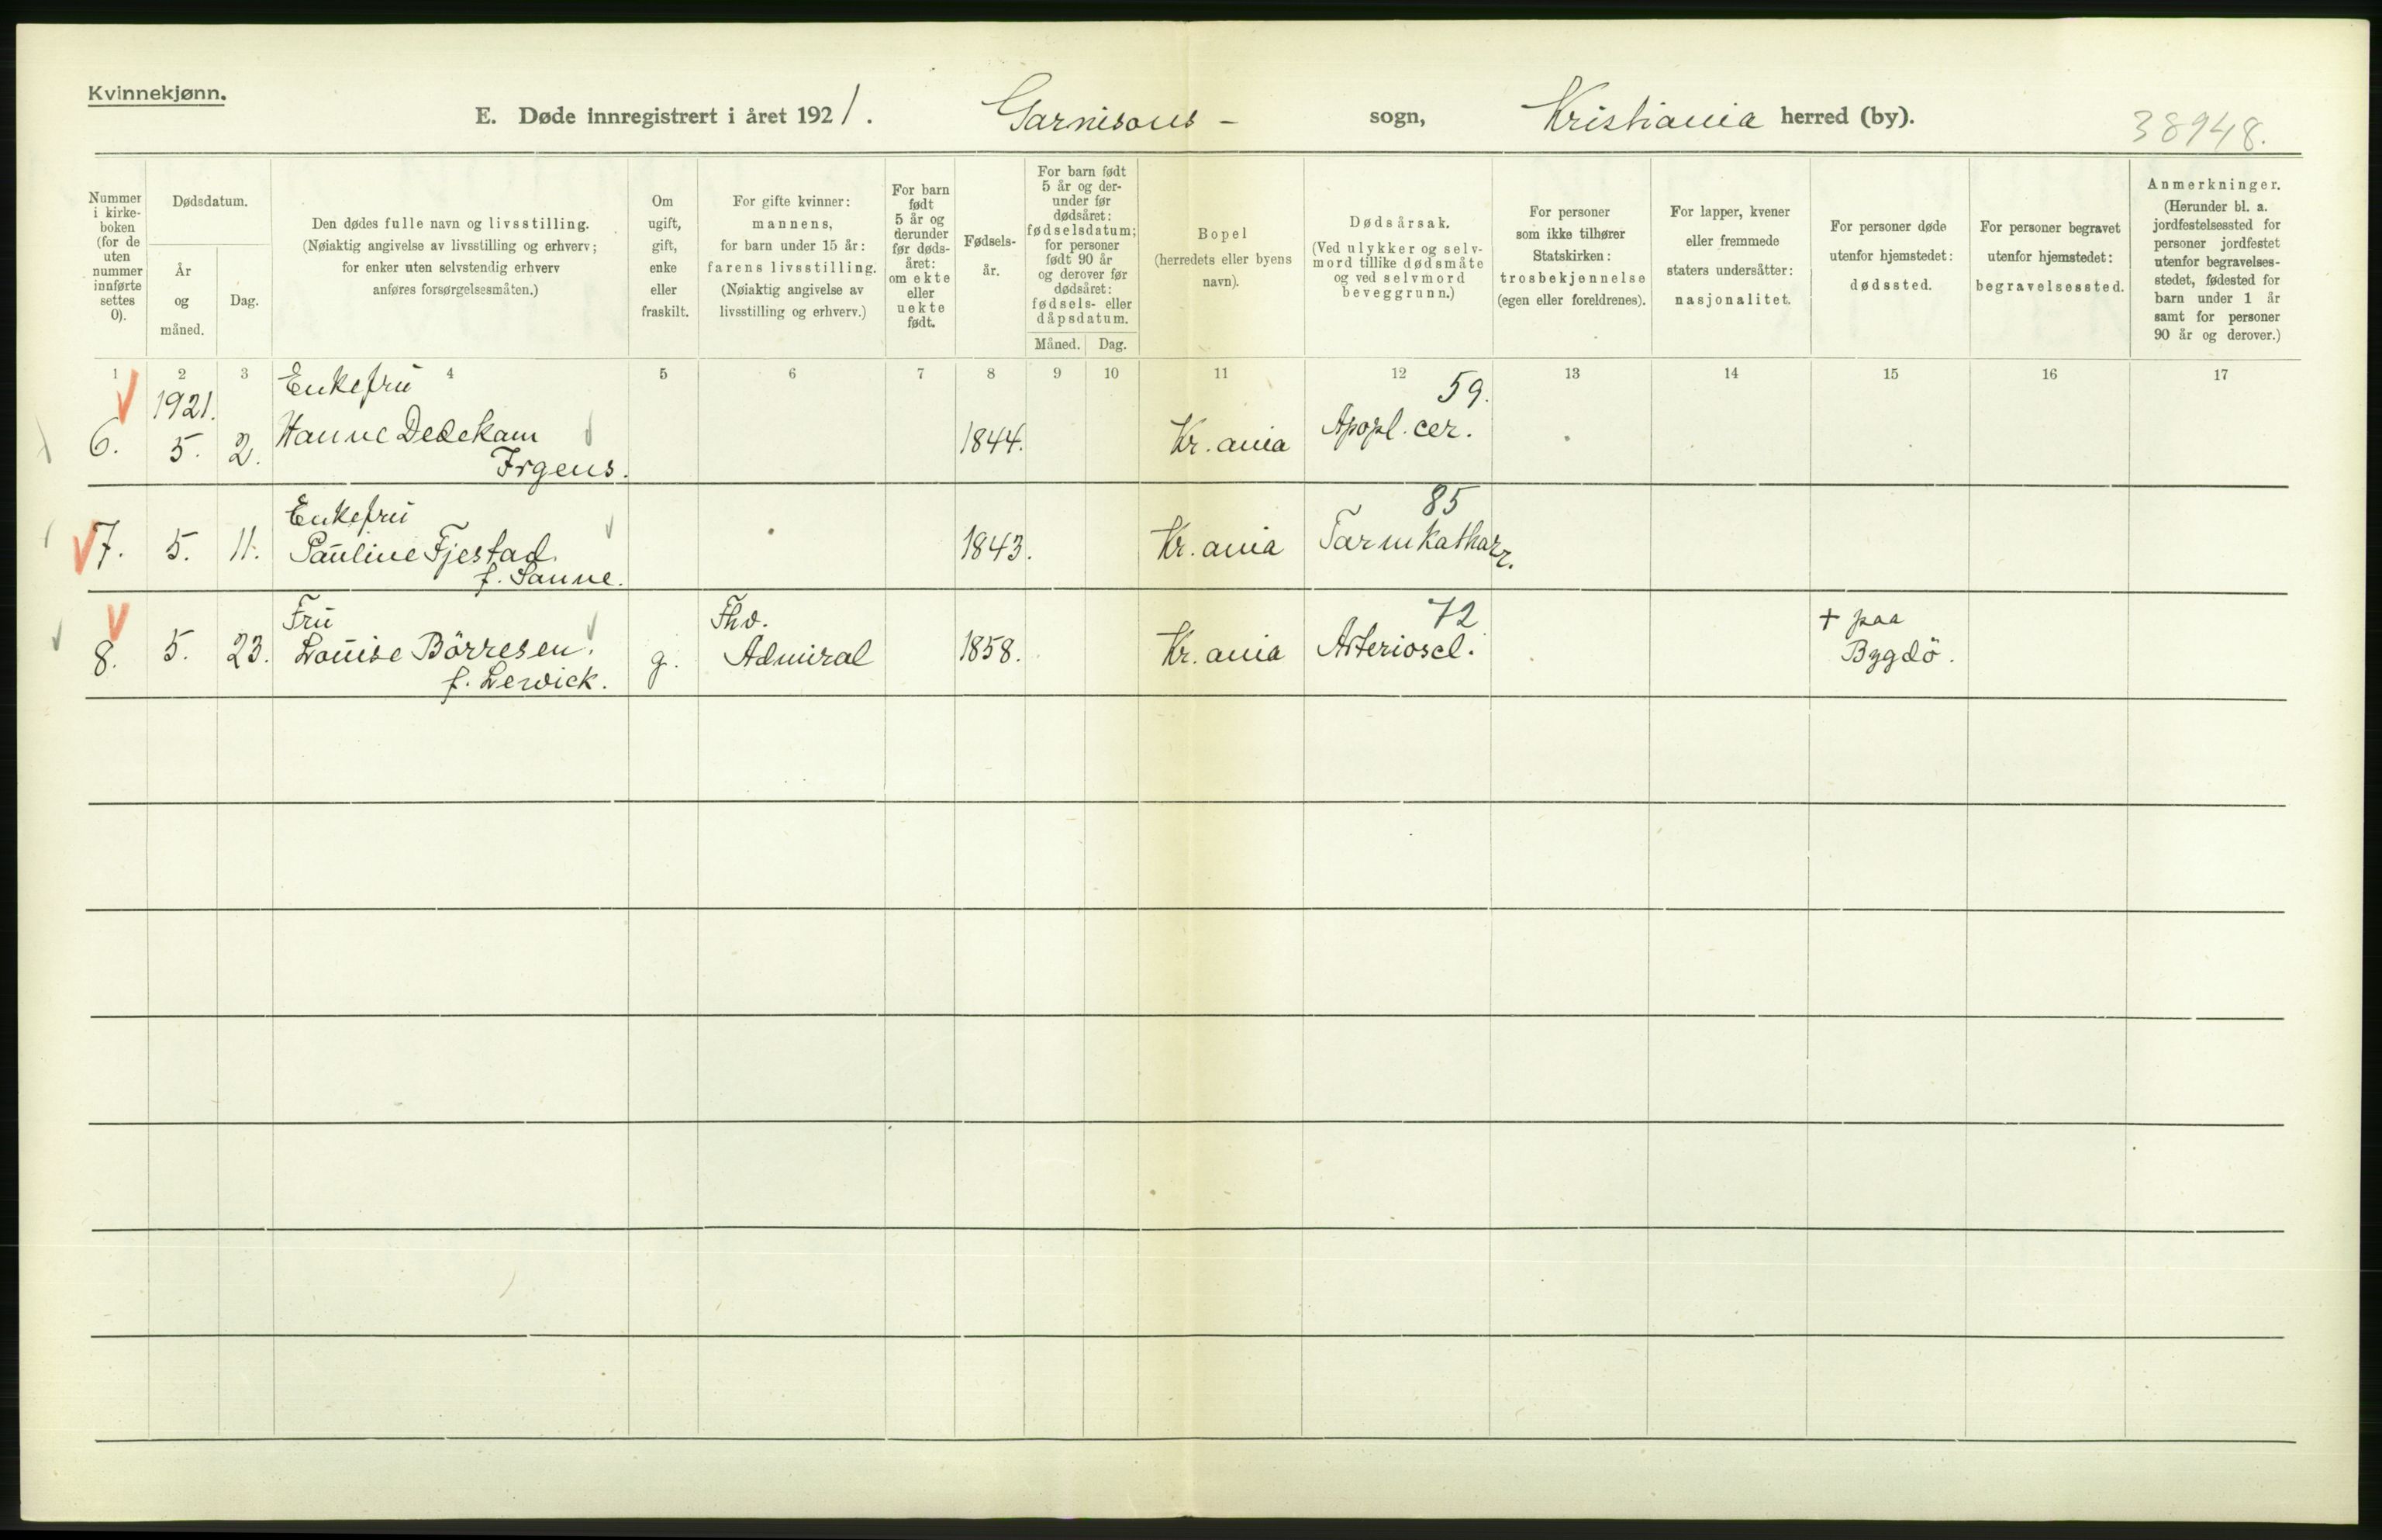 Kvinnekjønn.
E. Døde innregistrert i året 1921. Garnisons- sogn, Kristiania herred (by). 38948.
Nummer i kirke-boken (for de uten nummer innførte settes 0).
Dødsdatum.
År og måned.
Dag.
Den dødes fulle navn og livsstilling.
(Nøiaktig angivelse av livsstilling og erhverv;
for enker uten selvstendig erhverv
anføres forsørgelsesmåten.)
Om
ugift,
gift,
enke
eller
fraskilt.
For gifte kvinner:
mannens,
for barn under 15 år:
farens livsstilling.
(Nøiaktig angivelse av
livsstilling og erhverv.)
For barn
født
5 år og
derunder
før døds-
året:
om ekte
eller
uekte
født.
Fødsels-
år.
For barn født
5 år og der-
under før
dødsåret:
fødselsdatum;
for personer
født 90 år
og derover før
dødsåret:
fødsels- eller
dåpsdatum.
Måned. Dag.
Bopel
(herredets eller byens
navn).
Dødsårsak.
(Ved ulykker og selv-
mord tillike dødsmåte
og ved selvmord
beveggrunn.)
For personer
som ikke tilhører
Statskirken:
trosbekjennelse
(egen eller foreldrenes).
For lapper, kvener
eller fremmede
staters undersåtter:
nasjonalitet.
For personer døde
utenfor hjemstedet:
dødssted.
For personer begravet
utenfor hjemstedet:
begravelsessted.
Anmerkninger.
(Herunder bl. a.
jordfestelsessted for
personer jordfestet
utenfor begravelses-
stedet, fødested for
barn under 1 år
samt for personer
90 år og derover.)
1 2 3 4 5 6 7 8 9 10 11 12 13 14 15 16 17
Enkefru 59.
1921.
6. 5. 2. Hanne Dedekam 1844. Kr.ania Apopl. cer.
Irgens.
Enkefru 85
7. 5. 11. Pauline Fjestad 1843. Kr.ania Tarmkatharr.
f. Sanne.
Fru Fhv. 72 + paa
8. 5. 23. Louise Börresen, g. Admiral 1858. Kr.ania Arterioscl. Bygdö.
f. Lerwick.